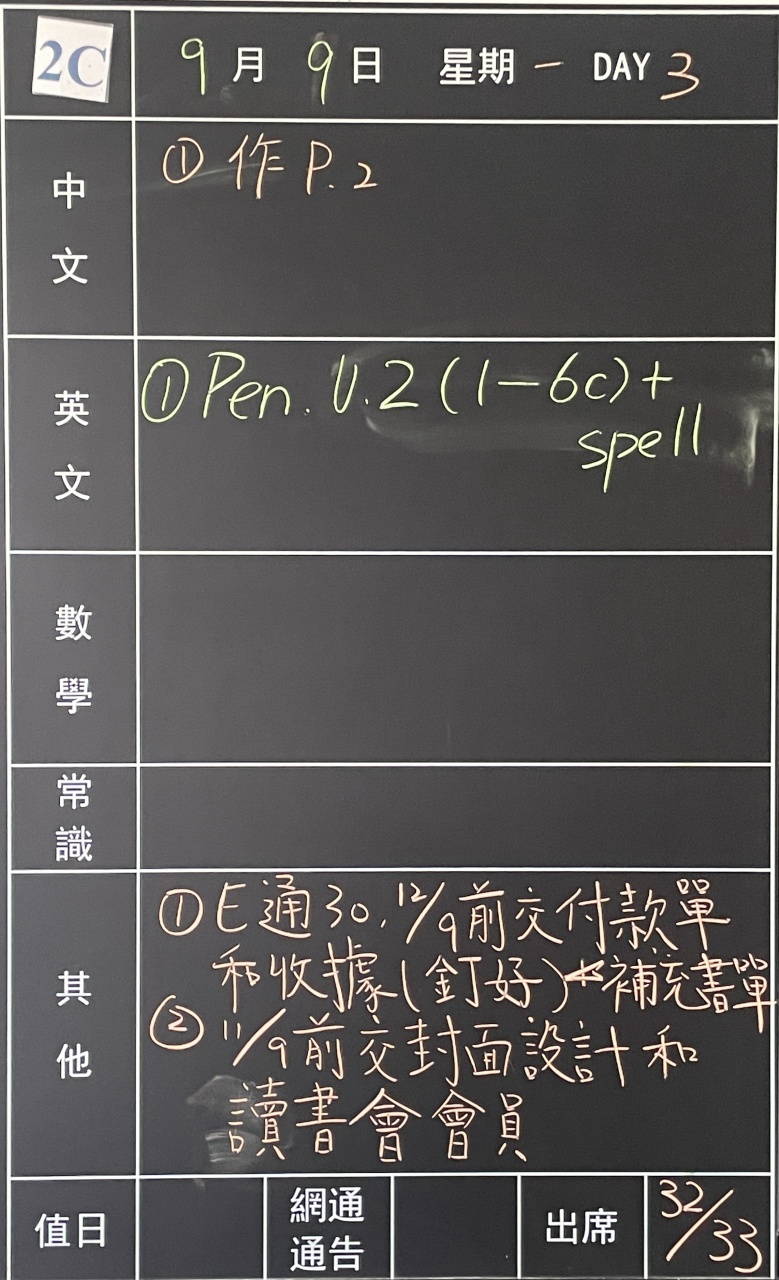 2C 9月9日 星期一 DAY 3
中文 ①作P.2
英文 ①Pen. U.2(1-6c)+
spell
數學
常識
其他 ①E通30, 12/9前交付款單
和收據(釘好)*補充書單
②11/9前交封面設計和
讀書會會員
值日 網通通告 出席 32/33